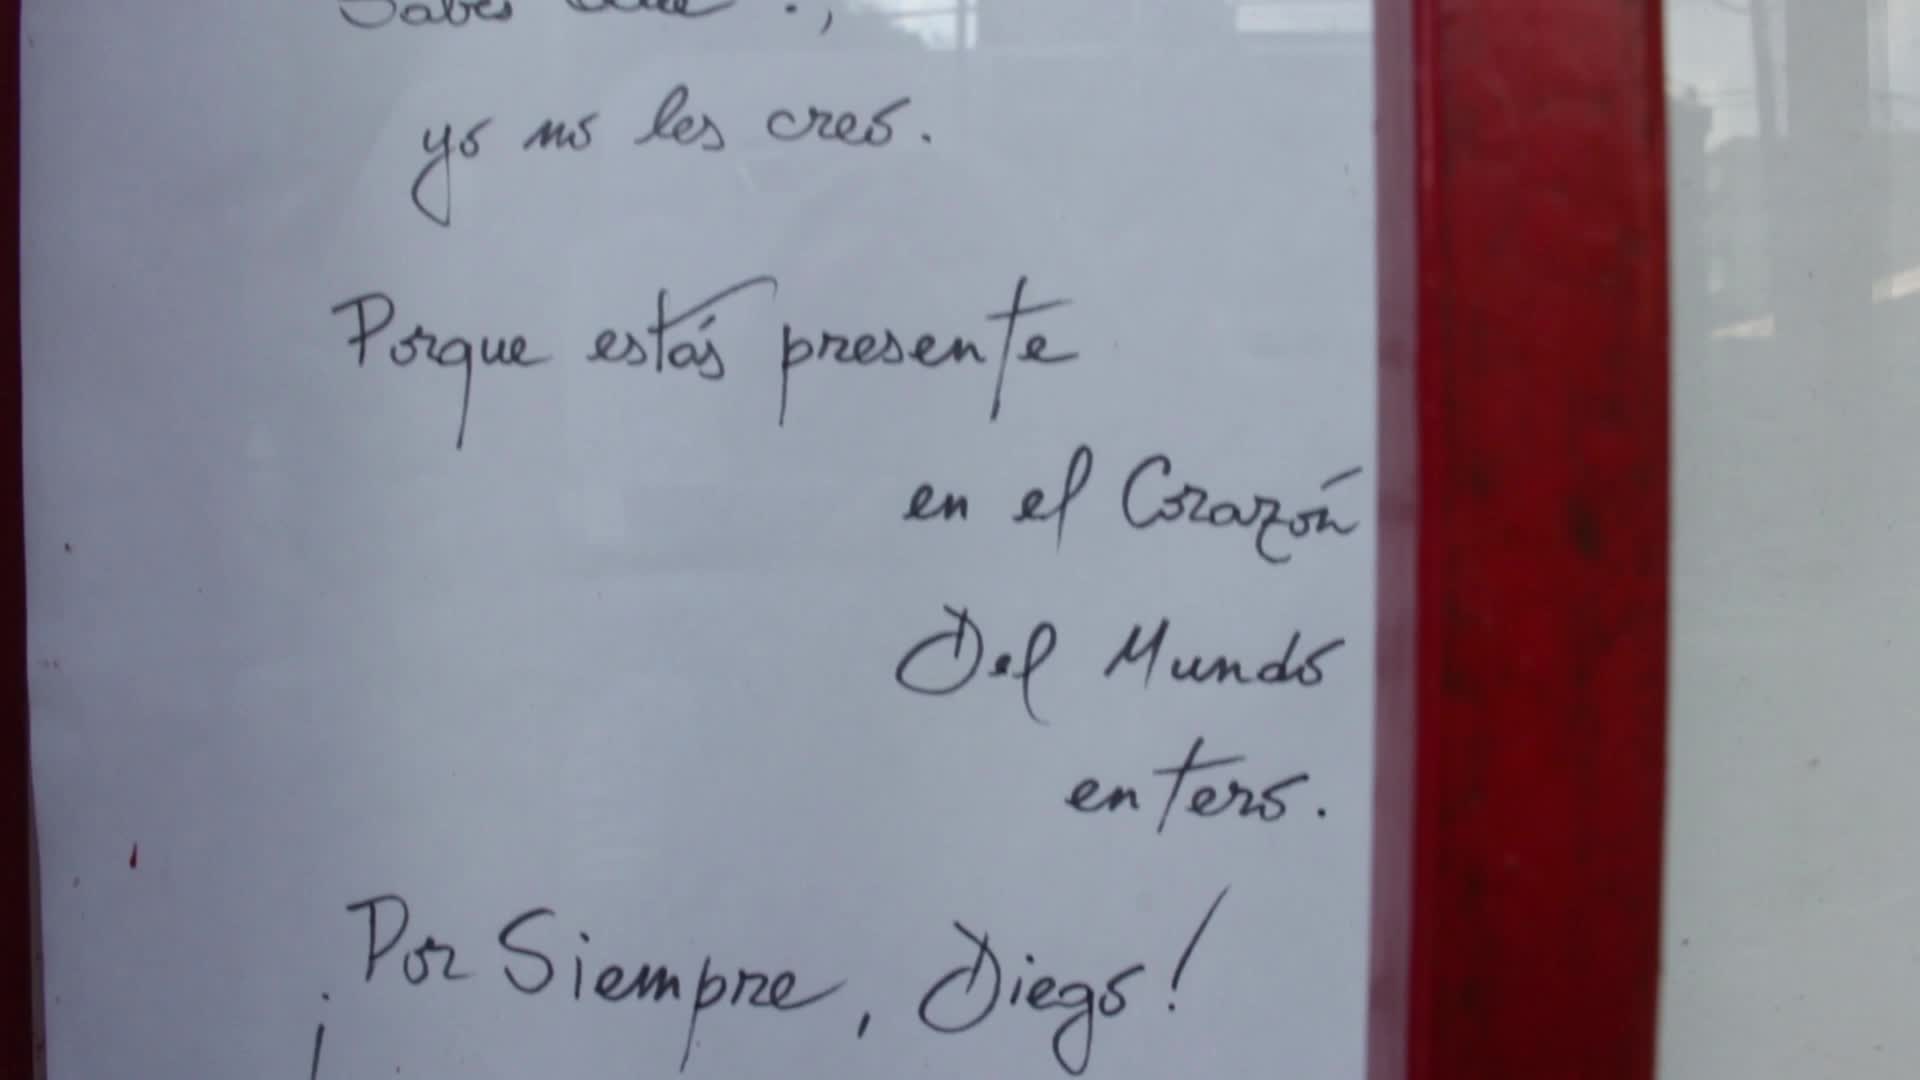 Sabés
yo no les creo.
Porque estás presente
en el Corazón
Del Mundo
entero.
¡Por Siempre, Diego!